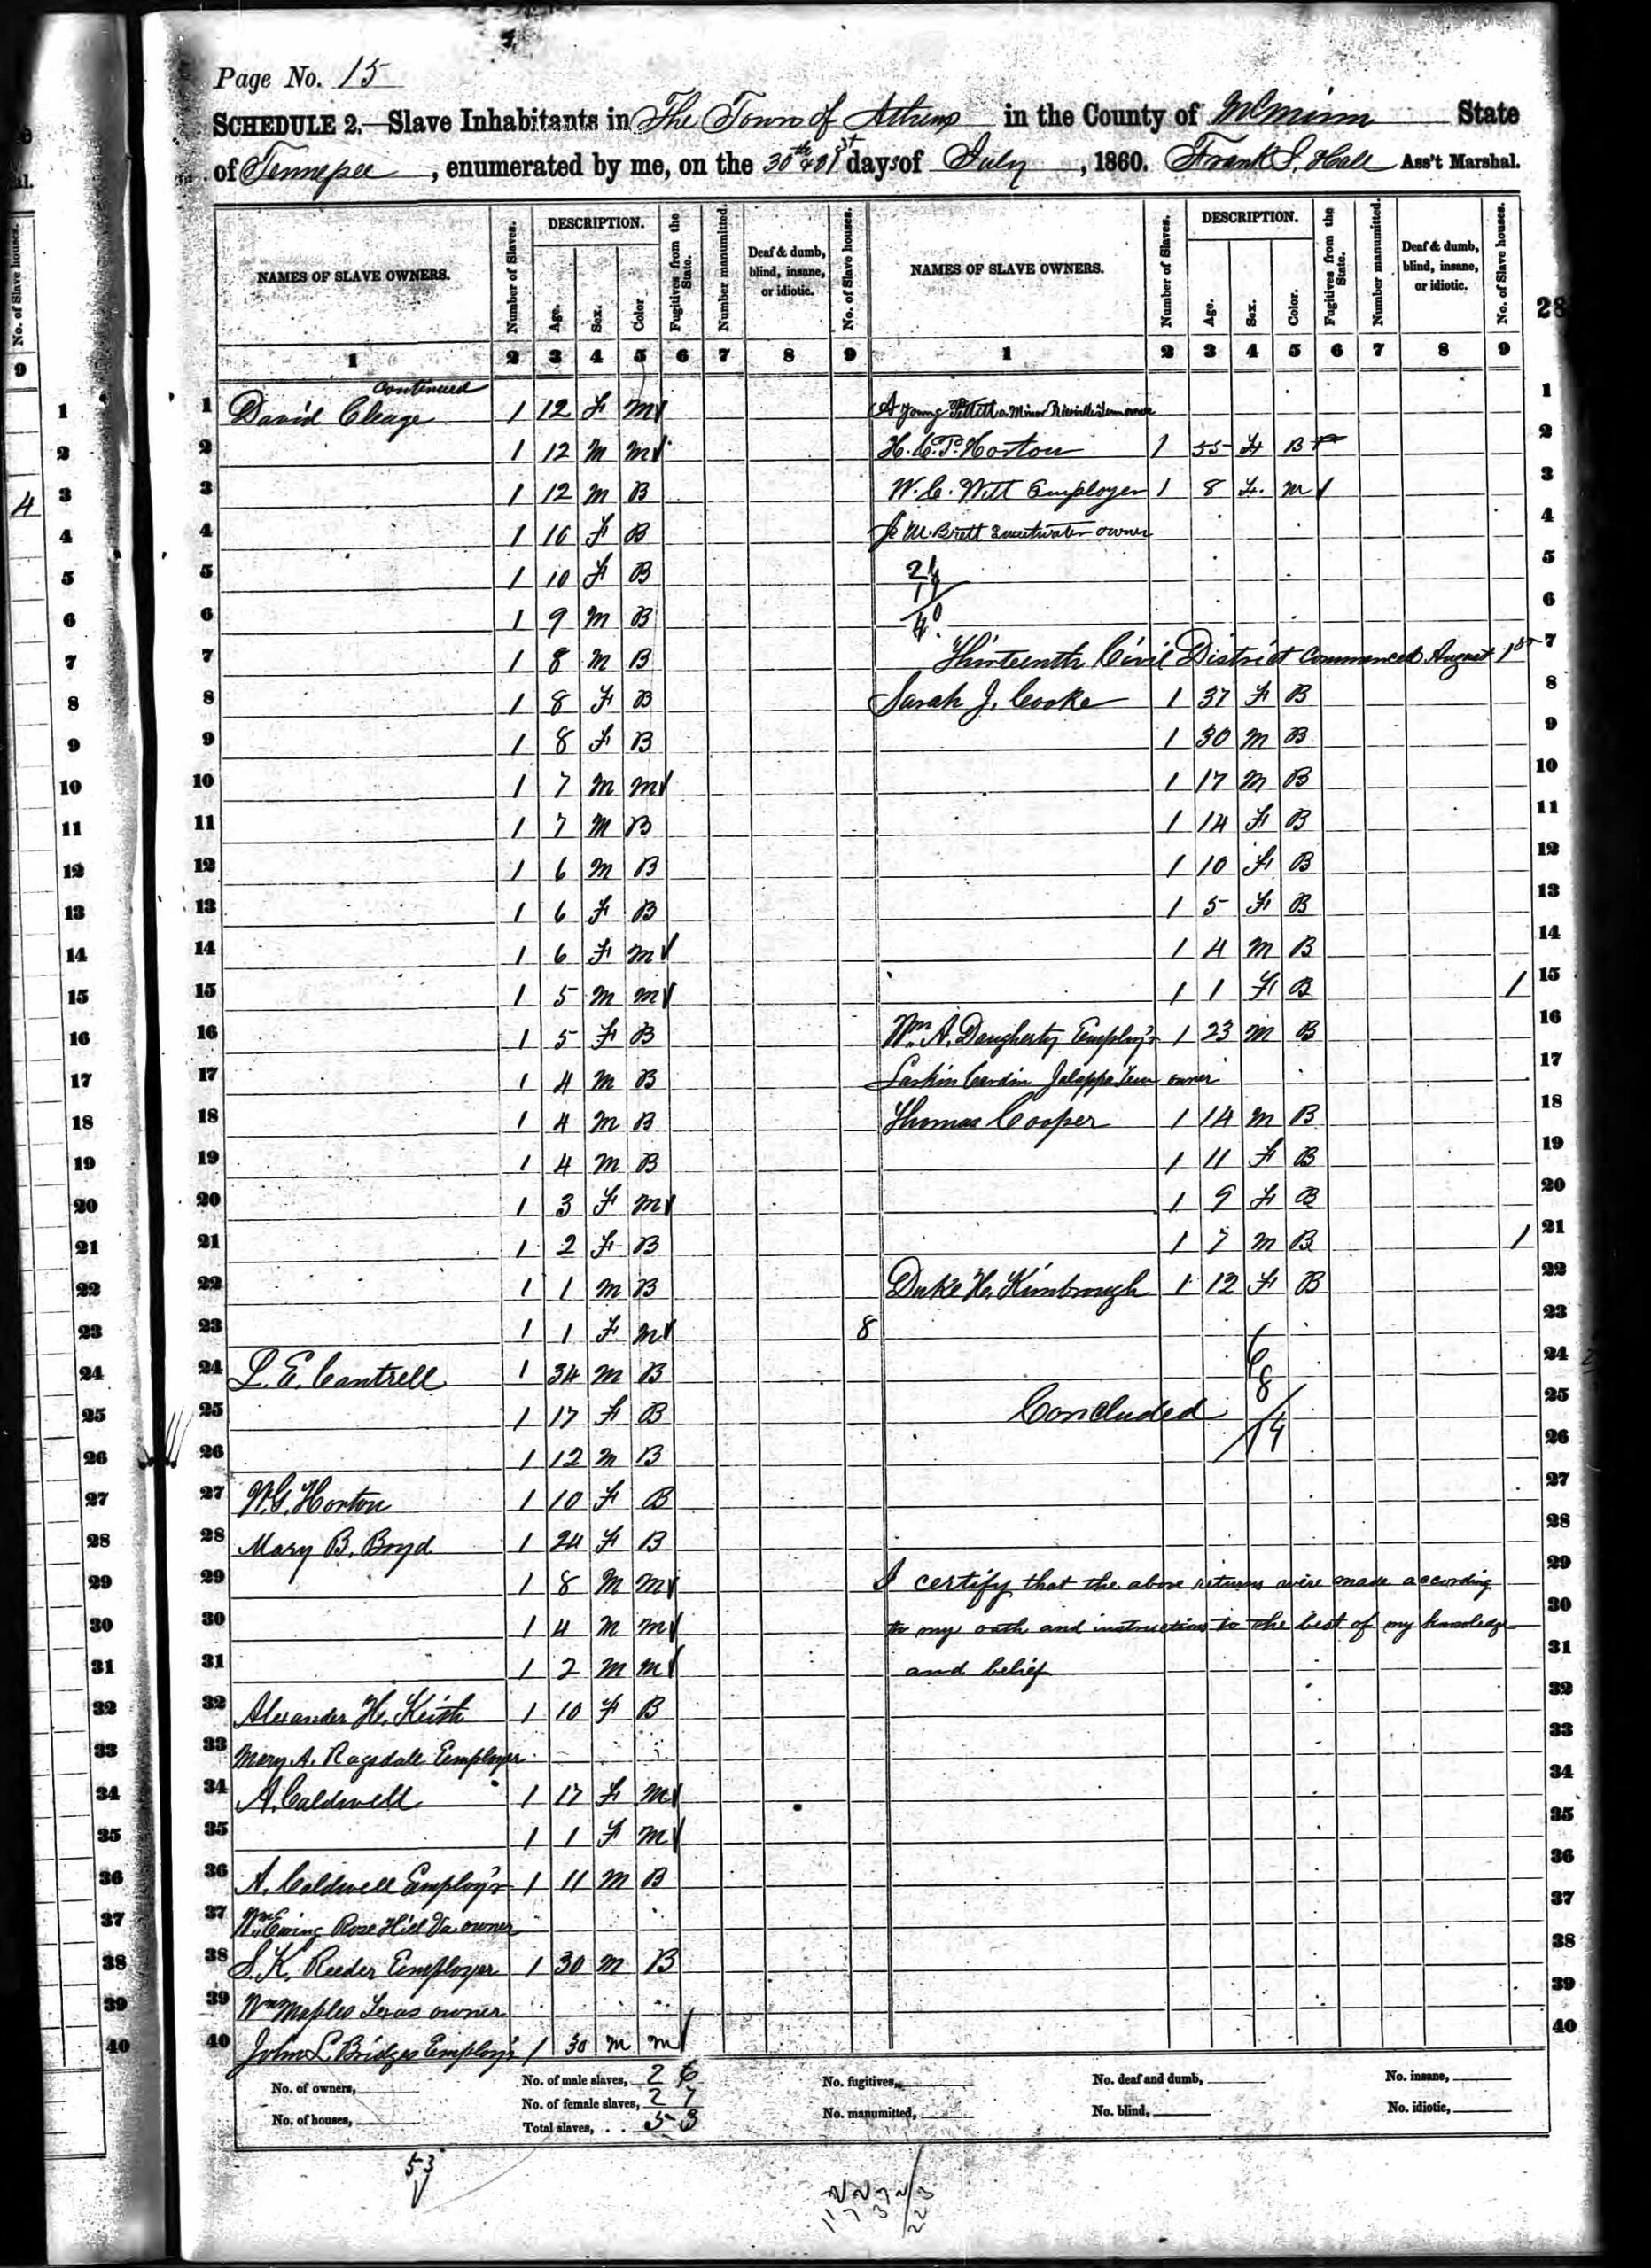 Page No. 15
SCHEDULE 2.—Slave Inhabitants in The Town of Athens in the County of McMinn State
of Tennessee, enumerated by me, on the 30th & 31st days of July, 1860. Frank S. Hale Ass't Marshal.
NAMES OF SLAVE OWNERS. Number of Slaves. DESCRIPTION. Age. Sex. Color Fugitives from the State. Number manumitted. Deaf & dumb, blind, insane, or idiotic. No. of Slave houses.
1 2 3 4 5 6 7 8 9
continued
1 David Cleage 1 12 F M
2 1 12 M M
3 1 12 M B
4 1 10 F B
5 1 10 F B
6 1 9 M B
7 1 8 M B
8 1 8 F B
9 1 8 F B
10 1 7 M M
11 1 7 M B
12 1 6 M B
13 1 6 F B
14 1 6 F M
15 1 5 M M
16 1 5 F B
17 1 4 M B
18 1 4 M B
19 1 4 M B
20 1 3 F M
21 1 2 F B
22 1 1 M B
23 1 1 F M 8
24 L. E. Cantrell 1 34 M B
25 1 17 F B
26 1 12 M B
27 W. G. Horton 1 10 F B
28 Mary B. Boyd 1 24 F B
29 1 8 M M
30 1 4 M M
31 1 2 M M
32 Alexander H. Keith 1 10 F B
33 Mary A. Ragsdale Employer
34 A. Caldwell 1 17 F M
35 1 1 F M
36 A. Caldwell Employ'r 1 11 M B
37 Wm Ewing Rose Hill Va. owner
38 S. K. Reeder Employer 1 30 M B
39 Wm Maples Texas owner
40 John L. Bridges Employ'r 1 30 M M
NAMES OF SLAVE OWNERS. Number of Slaves. DESCRIPTION. Age. Sex. Color. Fugitives from the State. Number manumitted. Deaf & dumb, blind, insane, or idiotic. No. of Slave houses.
28
1 2 3 4 5 6 7 8 9
A young Pettitt a Minor owner 1
H. C. P. Horton 1 55 F B 2
W. C. Witt Employer 1 8 F. M 3
M. Brett Sweetwater owner 4
5
6
Thirteenth Civil District commenced August 1st 7
Sarah J. Cooke 1 37 F B 8
1 30 M B 9
1 17 M B 10
1 14 F B 11
1 10 F B 12
1 5 F B 13
1 4 M B 14
1 1 F B 1 15
Wm. A. Daugherty Employ'r 1 23 M B 16
Larkin Cardin Jalappa Tenn owner 17
Thomas Cooper 1 14 M B 18
1 11 F B 19
1 9 F B 20
1 7 M B 1 21
Duke H. Kimbrough 1 12 F B 22
23
6 24
8
Concluded 25
14 26
27
28
I certify that the above returns were made according 29
to my oath and instructions to the best of my knowledge 30
and belief 31
32
33
34
35
36
37
38
39
40
No. of owners, No. of male slaves, 26 No. fugitives, No. deaf and dumb, No. insane,
No. of houses, No. of female slaves, 27 No. manumitted, No. blind, No. idiotic,
Total slaves, . . 53
53
No. of Slave houses.
9
1
2
3
4
4
5
6
7
8
9
10
11
12
13
14
15
16
17
18
19
20
21
22
23
24
25
26
27
28
29
30
31
32
33
34
35
36
37
38
39
40